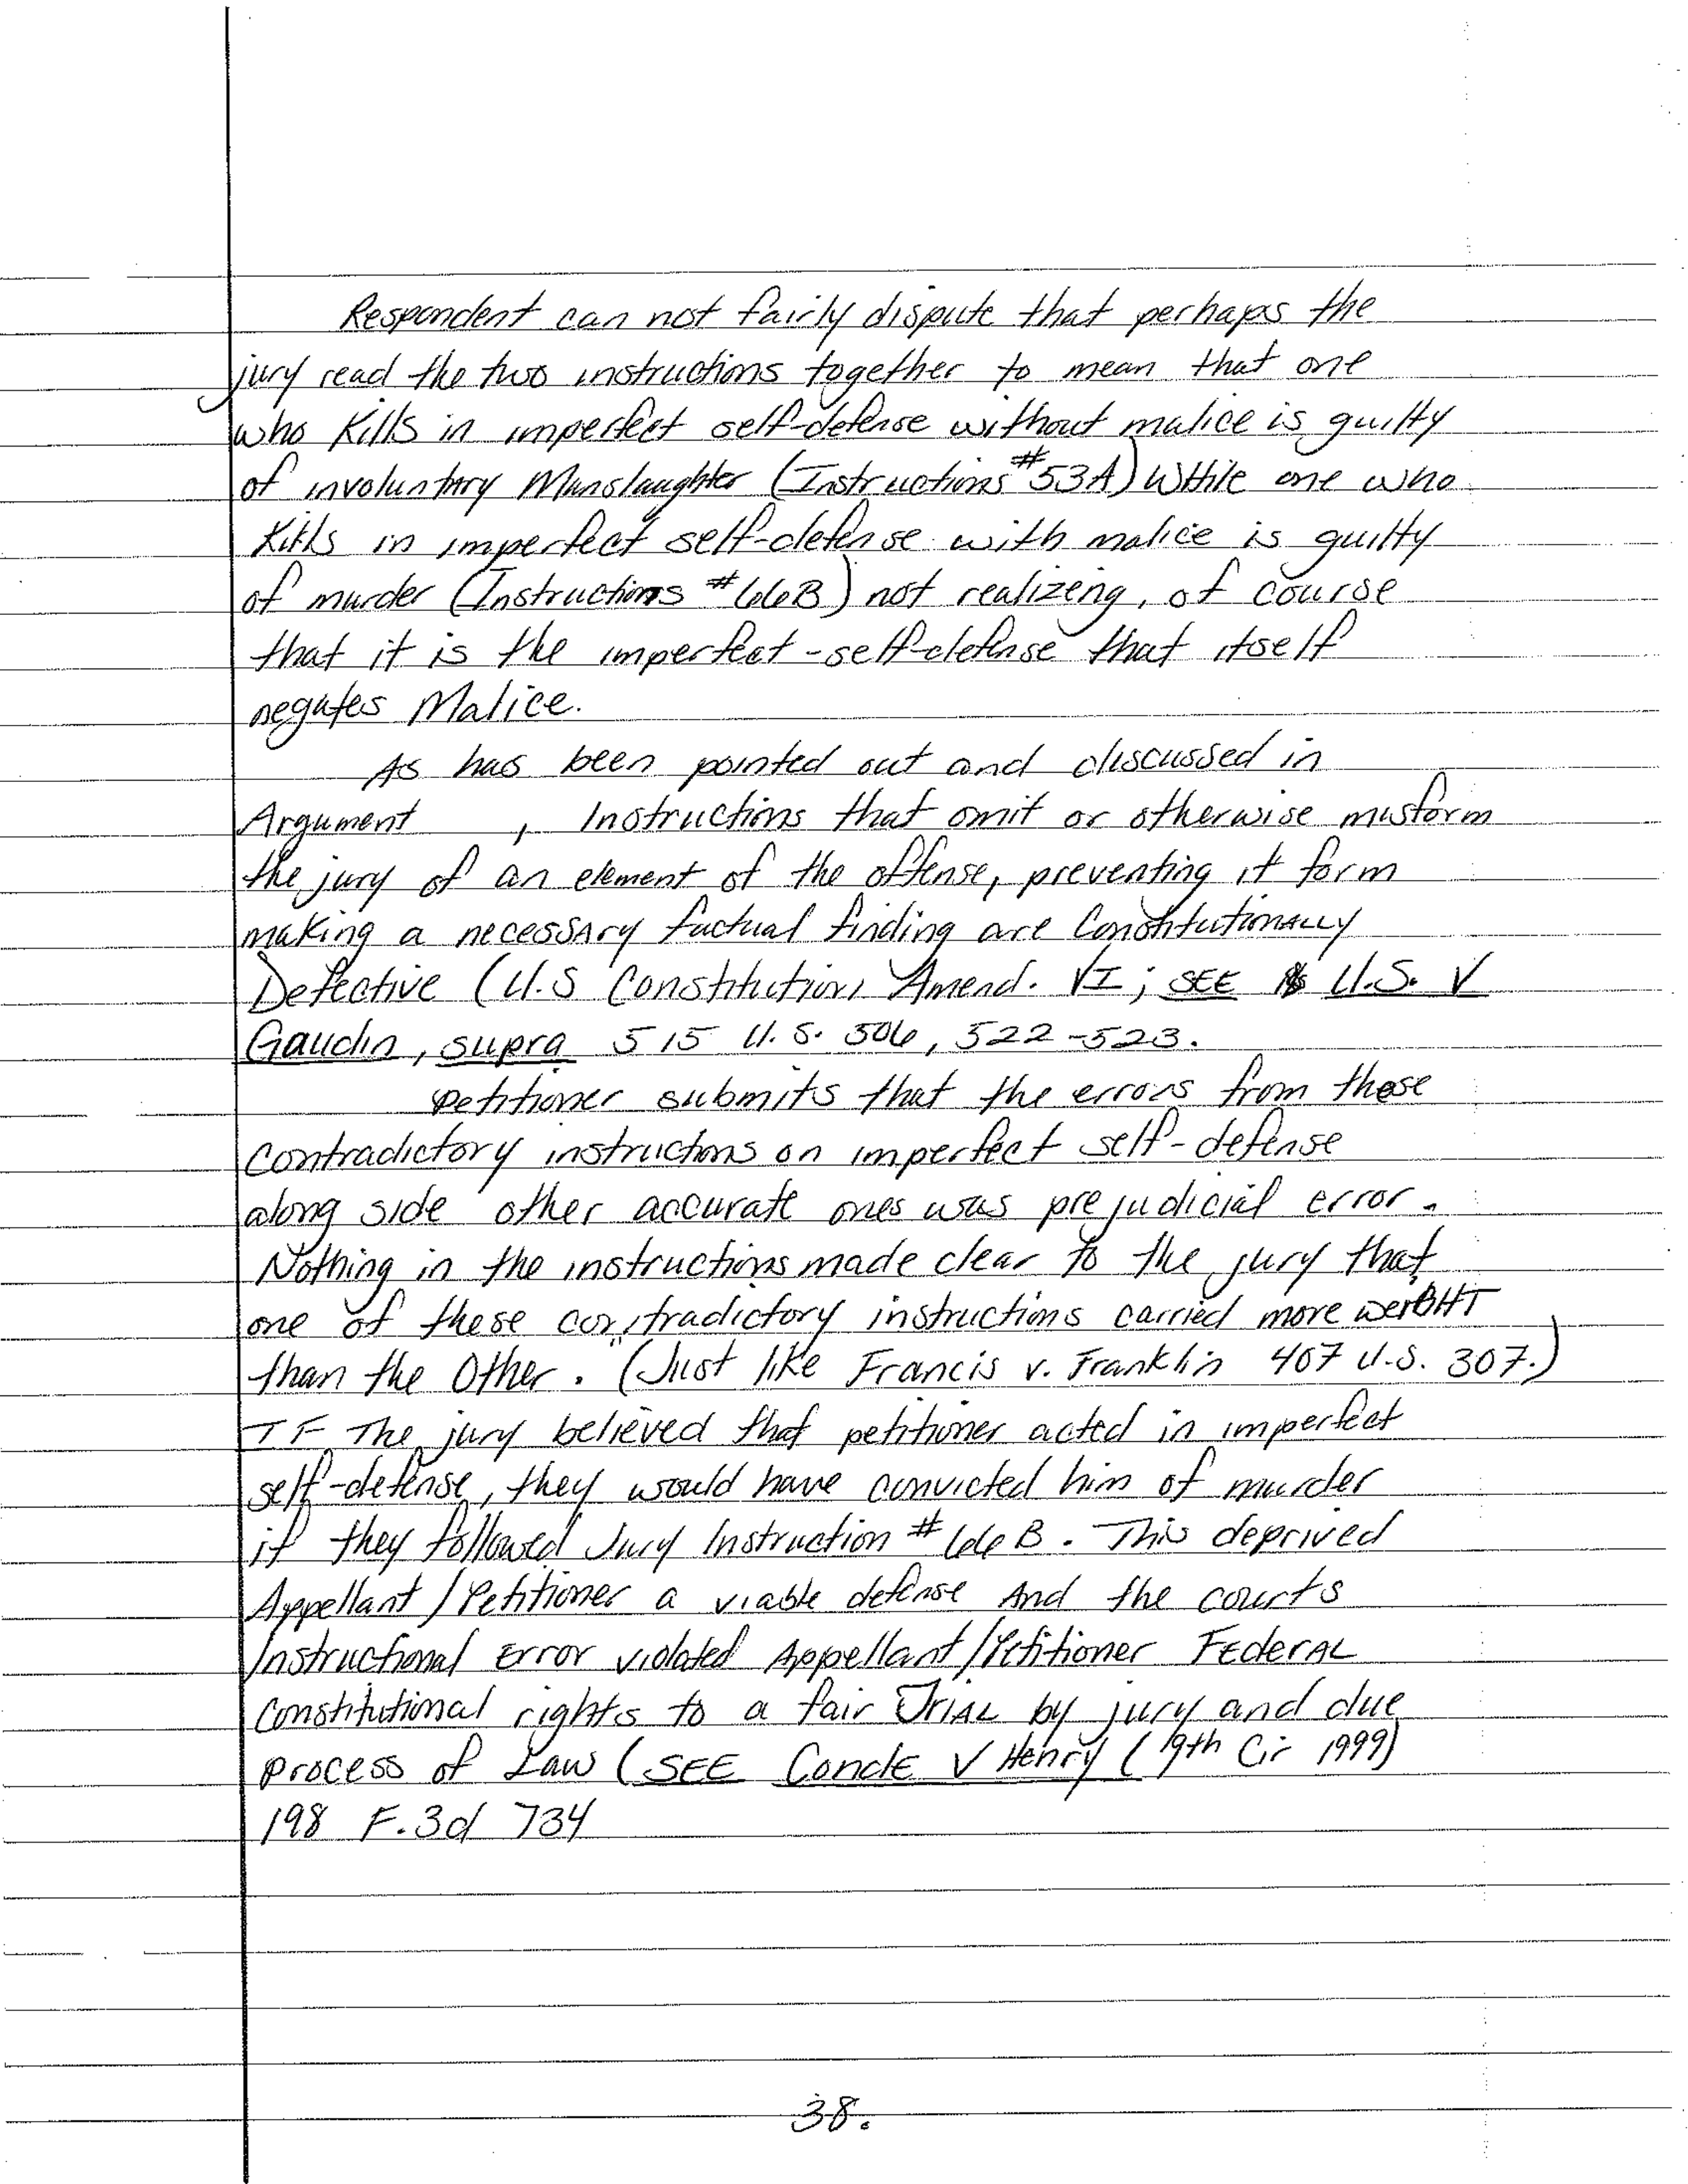 Respondent can not fairly dispute that perhaps the
jury read the two instructions together to mean that one
who Kills in imperfect self-defense without malice is guilty
of involuntary Manslaughter (Instructions #53A) WHile one who
Kills in imperfect self-defense with malice is guilty
of murder (Instructions #66B) not realizeng, of course
that it is the imperfect-self-defense that itself
negates Malice.
As has been pointed out and discussed in
Argument , Instructions that omit or otherwise misform
the jury of an element of the offense, preventing it form
making a necessary factual finding are Constitutionally
Defective (U.S Constitution Amend. VI; SEE U.S. V
Gaudin, supra 515 U.S. 506, 522-523.
Petitioner submits that the errors from these
contradictory instructions on imperfect self-defense
along side other accurate ones was prejudicial error.
Nothing in the instructions made clear to the jury that
one of these contradictory instructions carried more weigHT
than the Other. (Just like Francis v. Franklin 407 U.S. 307.)
IF The jury believed that petitioner acted in imperfect
self-defense, they would have convicted him of murder
if they followed Jury Instruction #66B. This deprived
Appellant/Petitioner a viable defense And the courts
Instructional Error violated Appellant/Petitioner FEDERAL
constitutional rights to a fair TriAL by jury and due
process of Law (SEE Conde V Henry (19th Cir 1999)
198 F.3d 734
38.